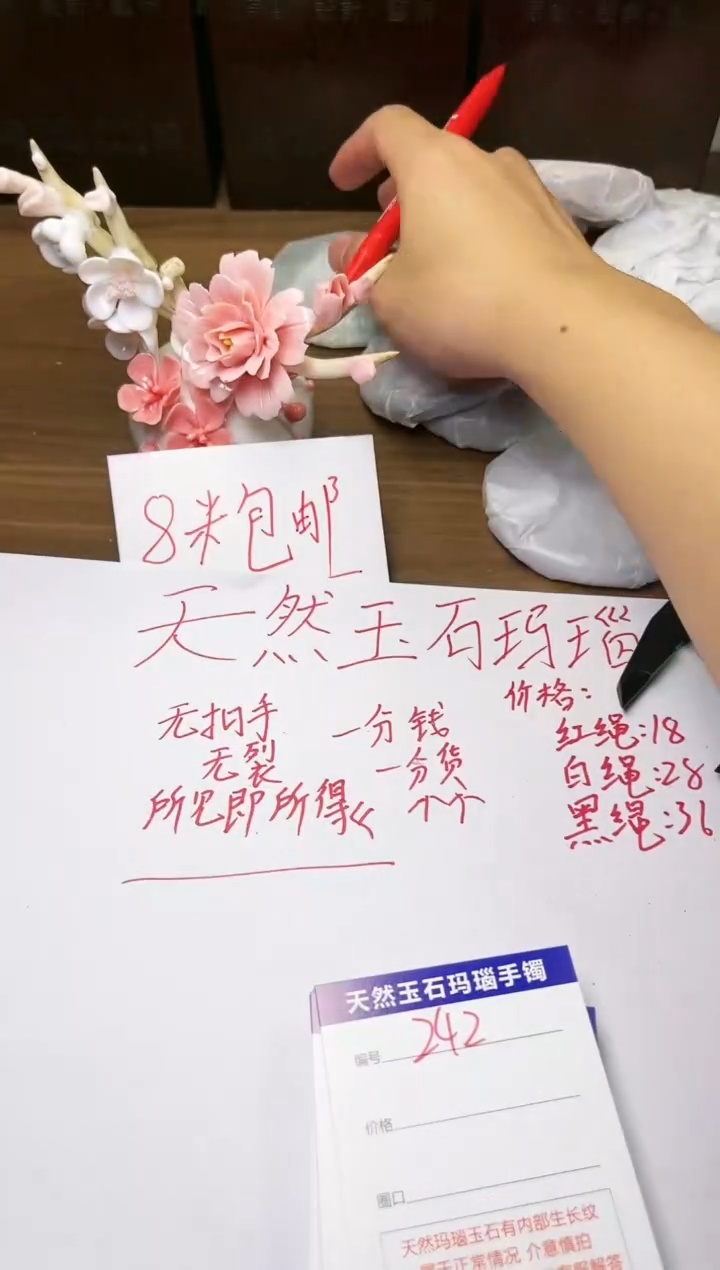 8米包邮
天然玉石玛瑙
无扣手 一分钱
无裂 一分货
所见即所得
价格:
红绳:18
白绳:28
黑绳:36
天然玉石玛瑙手镯
编号 242
价格
圈口
天然玛瑙玉石有内部生长纹
属于正常情况 介意慎拍
客服解答